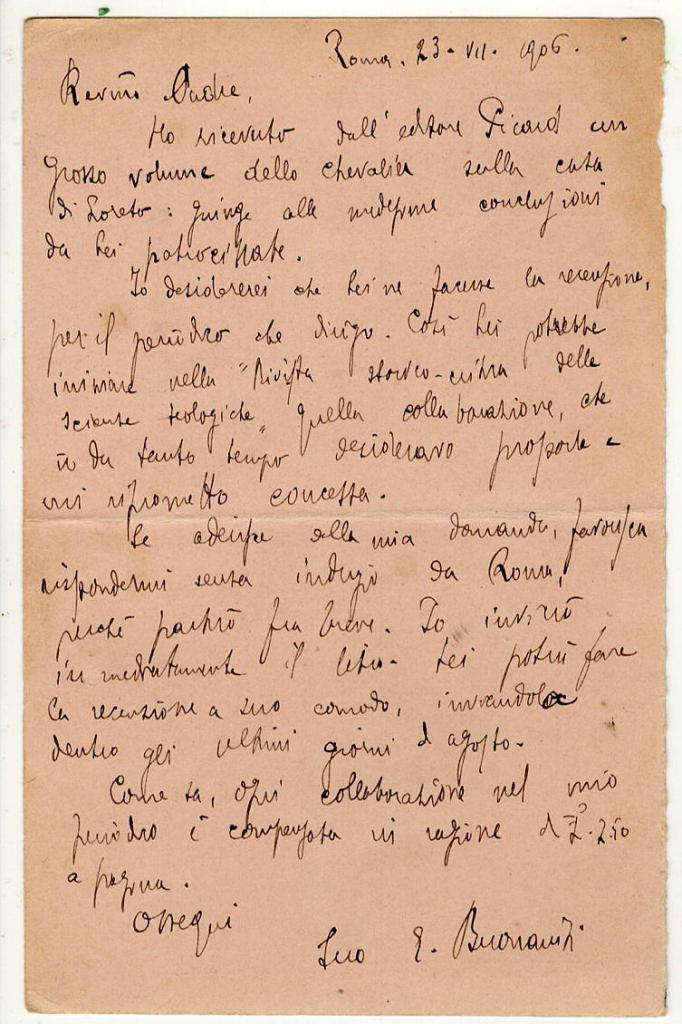 Roma, 23. VII. 1906.
Rev.mo Padre,
Ho ricevuto dall'editore Picard un
grosso volume dello Chevalier sulla casa
di Loreto: giunge alle medesime conclusioni
da Lei patrocinate.
Io desidererei che Lei ne facesse la recensione,
per il periodico che dirigo. Così Lei potrebbe
iniziare nella "Rivista storico-critica delle
scienze teologiche" quella collaborazione, che
io da tanto tempo desideravo proporle e
mi riprometto concessa.
Se aderisce alla mia domanda, favorisca
rispondermi senza indugio da Roma,
perché partirò fra breve. Io invierò
immediatamente il libro. Lei potrà fare
la recensione a suo comodo, inviandola
dentro gli ultimi giorni d'agosto.
Come sa, ogni collaborazione nel mio
periodico è compensata in ragione di £. 2.50
a pagina.
Ossequi
Suo E. Buonaiuti